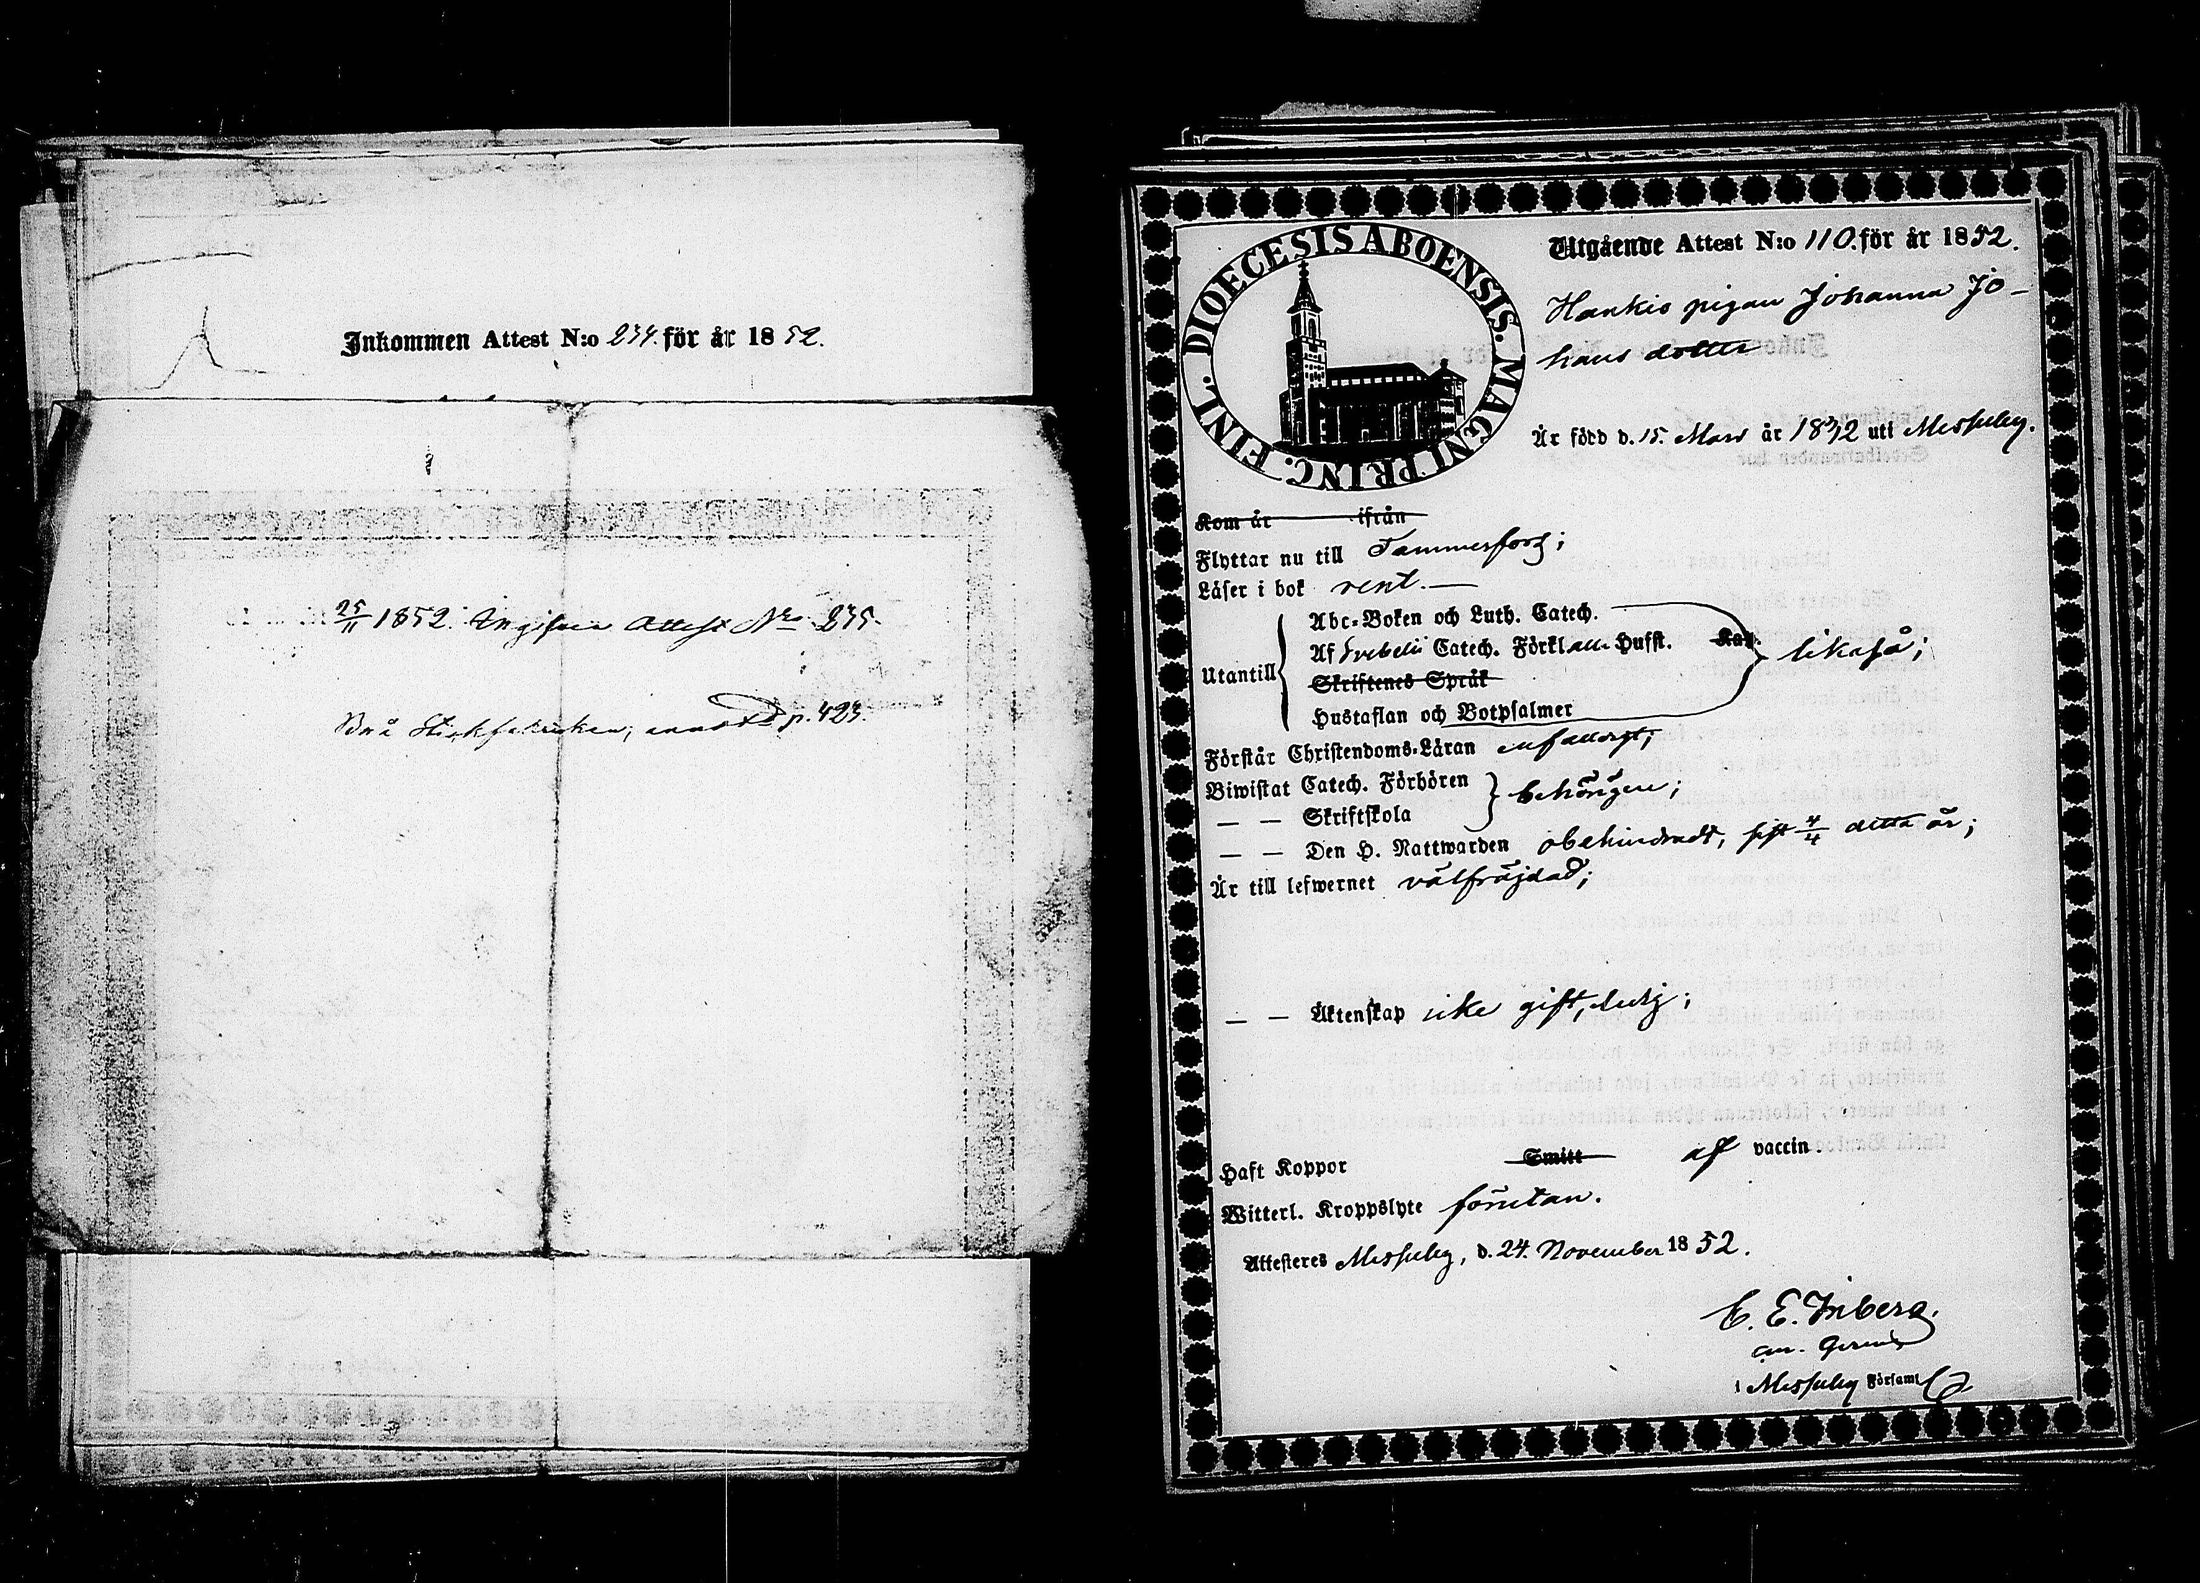 Inkommen Attest N:o 234. för år 1852.
25/11 1852. Ingifven Attest No 235.
p. 423.
DIOECESIS ABOENSIS. MAGNI PRINC. FINL.
Utgående Attest N:o 110. för år 1852.
Hankis pigan Johanna Jo-
hans dotter
Är född d. 15. Mars år 1832 uti Messuby.
Kom år ifrån
Flyttar nu till Tammerfors;
Läser i bok rent. —
Abc-Boken och Luth. Catech.
Af Svebelii Catech. Förkl alla Hufst. Kap.
Utantill likaså;
Skriftenes Språk
Hustaflan och Botpsalmer
Förstår Christendoms-Läran enfaldigt;
Biwistat Catech. Förhören
behörigen;
— — Skriftskola
— — Den H. Nattwarden obehindradt, sist 4/4 detta år;
Är till lefwernet välfräjdad;
— — Äktenskap icke gift, ledig;
Haft Koppor Smitt af vaccin.
Witterl. Kroppslyte förutan.
Attesteres Messuby, d. 24. November 1852.
C. E. Inberg.
i Messuby Församl